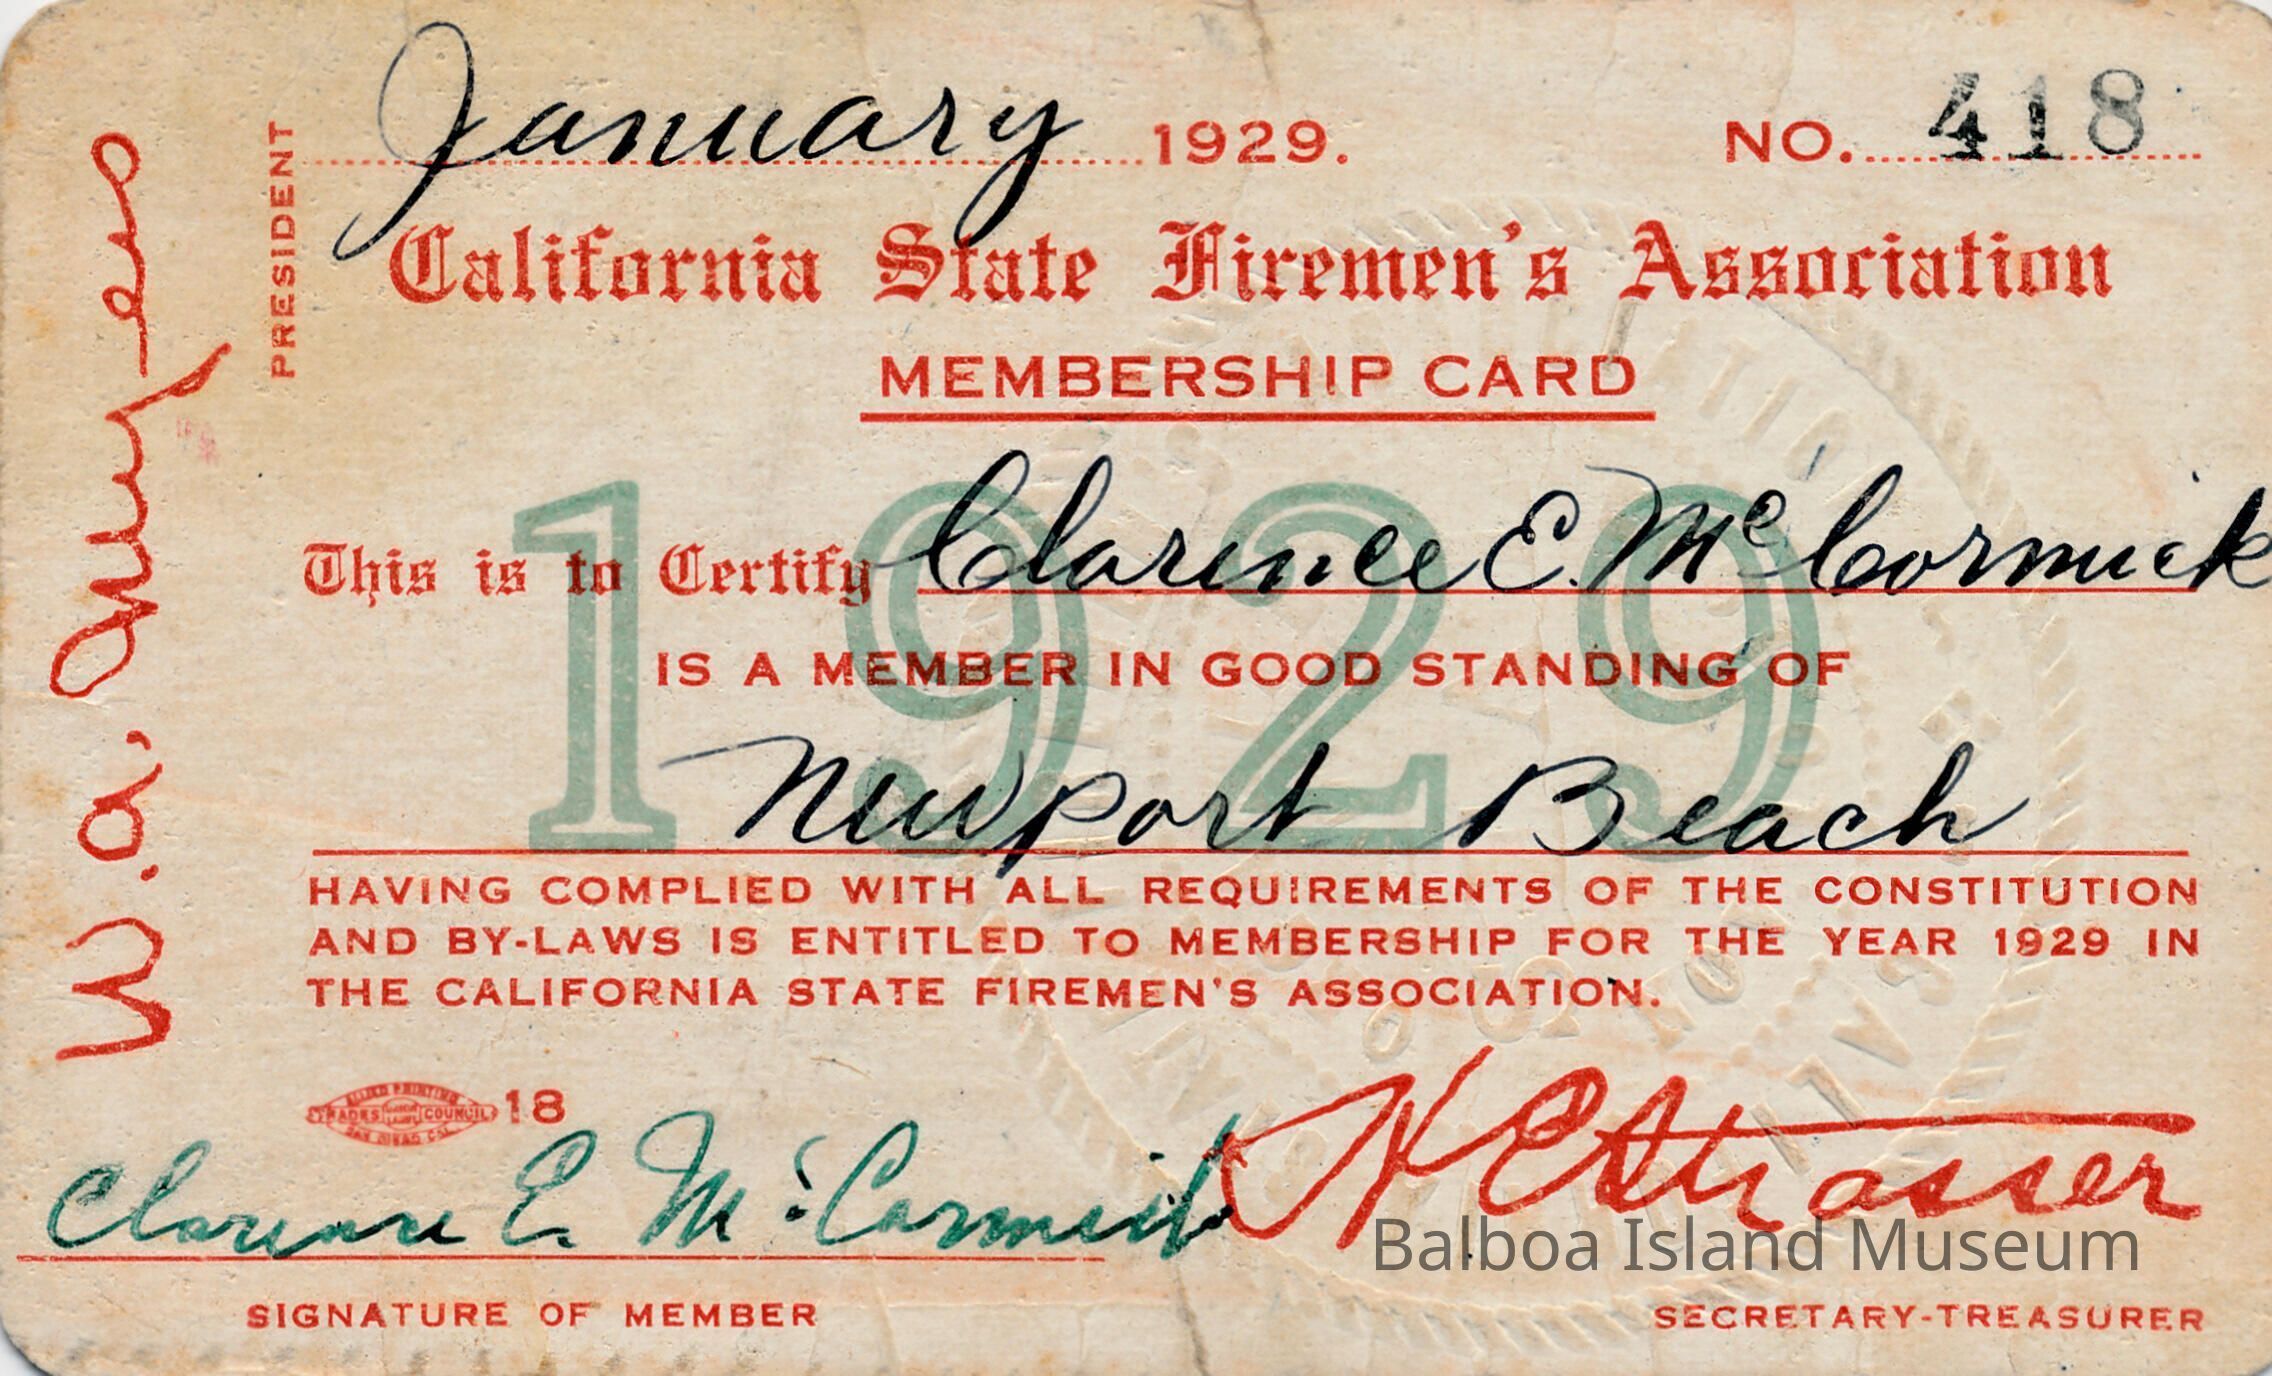 January 1929. NO. 418
California State Firemen's Association
MEMBERSHIP CARD
This is to Certify Clarence E. McCormick
IS A MEMBER IN GOOD STANDING OF
Newport Beach
HAVING COMPLIED WITH ALL REQUIREMENTS OF THE CONSTITUTION
AND BY-LAWS IS ENTITLED TO MEMBERSHIP FOR THE YEAR 1929 IN
THE CALIFORNIA STATE FIREMEN'S ASSOCIATION.
1929
ALLIED PRINTING
TRADES UNION LABEL COUNCIL 18
SAN DIEGO CAL.
Clarence E. McCormick
SIGNATURE OF MEMBER
H E Strasser
SECRETARY-TREASURER
W. A.
PRESIDENT
Balboa Island Museum